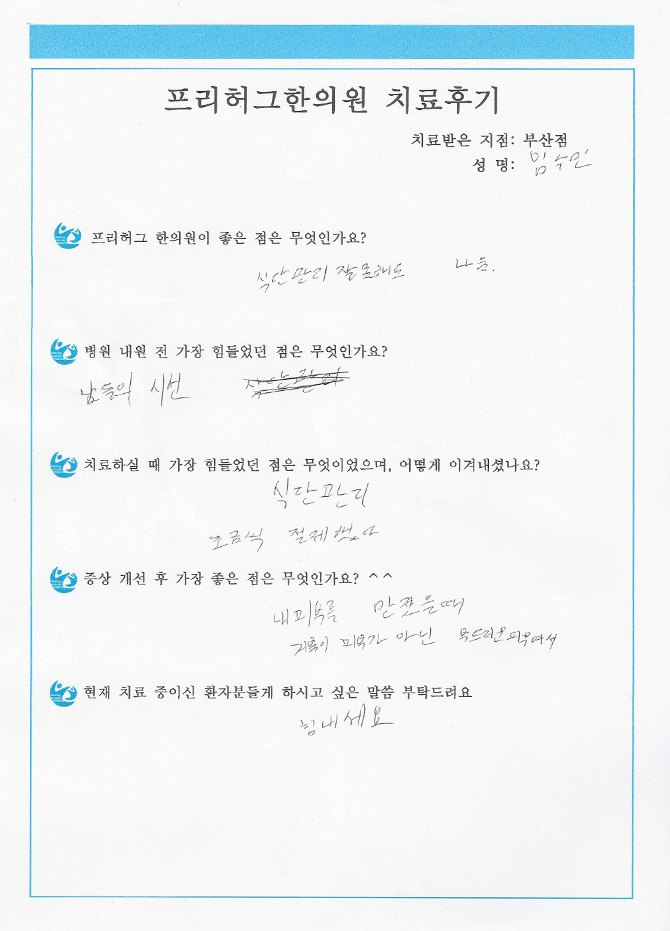 프리허그한의원 치료후기
치료받은 지점: 부산점
성 명: 임수민
프리허그 한의원이 좋은 점은 무엇인가요?
식단관리 잘못해도 나음.
병원 내원 전 가장 힘들었던 점은 무엇인가요?
남들의 시선
치료하실 때 가장 힘들었던 점은 무엇이었으며, 어떻게 이겨내셨나요?
식단관리
조금씩 절제했다
증상 개선 후 가장 좋은 점은 무엇인가요? ^^
내피부를 만졌을때
피부가 아닌 부드러운피부여서
현재 치료 중이신 환자분들게 하시고 싶은 말씀 부탁드려요
힘내세요